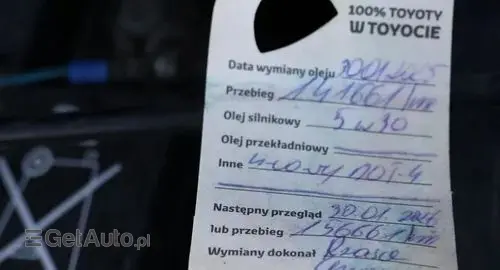 100% TOYOTY
W TOYOCIE
Data wymiany oleju 30.01.2025
Przebieg 141661 km
Olej silnikowy 5w30
Olej przekładniowy
Inne DOT-4
Następny przegląd 30.01.2026
lub przebieg 156661 km
Wymiany dokonał
GetAuto.pl